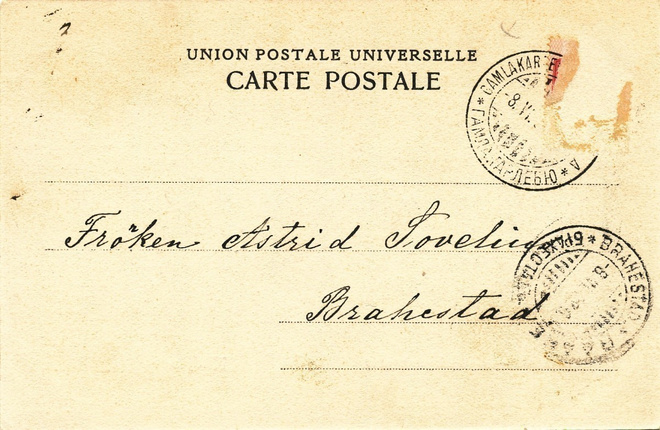 UNION POSTALE UNIVERSELLE
CARTE POSTALE
GAMLAKARLEBY
ГАМЛАКАРЛЕБЮ * А *
8.VI
Fröken Astrid
Brahestad
* BRAHESTAD *
БРАХЕСТАДЪ